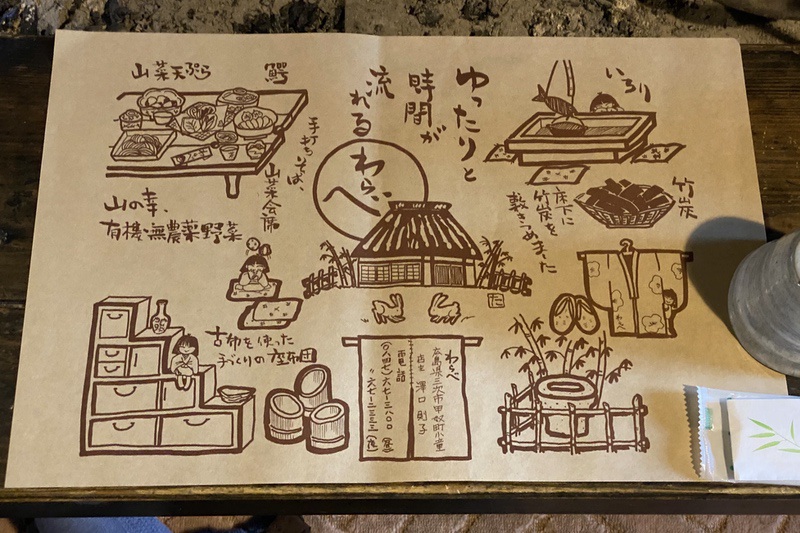 ゆったりと
時間が
流れる
わらべ
いろり
竹炭
床下に
竹炭を
敷きつめました
山菜天ぷら
鰐
手打ちそば、
山菜会席
山の幸、
有機・無農薬野菜
古布を使った
手づくりの座布団
わらべ
広島県三次市甲奴町小童
店主 澤口則子
電話
(〇八四七)六七-三八〇〇
〃 六七-二三三三